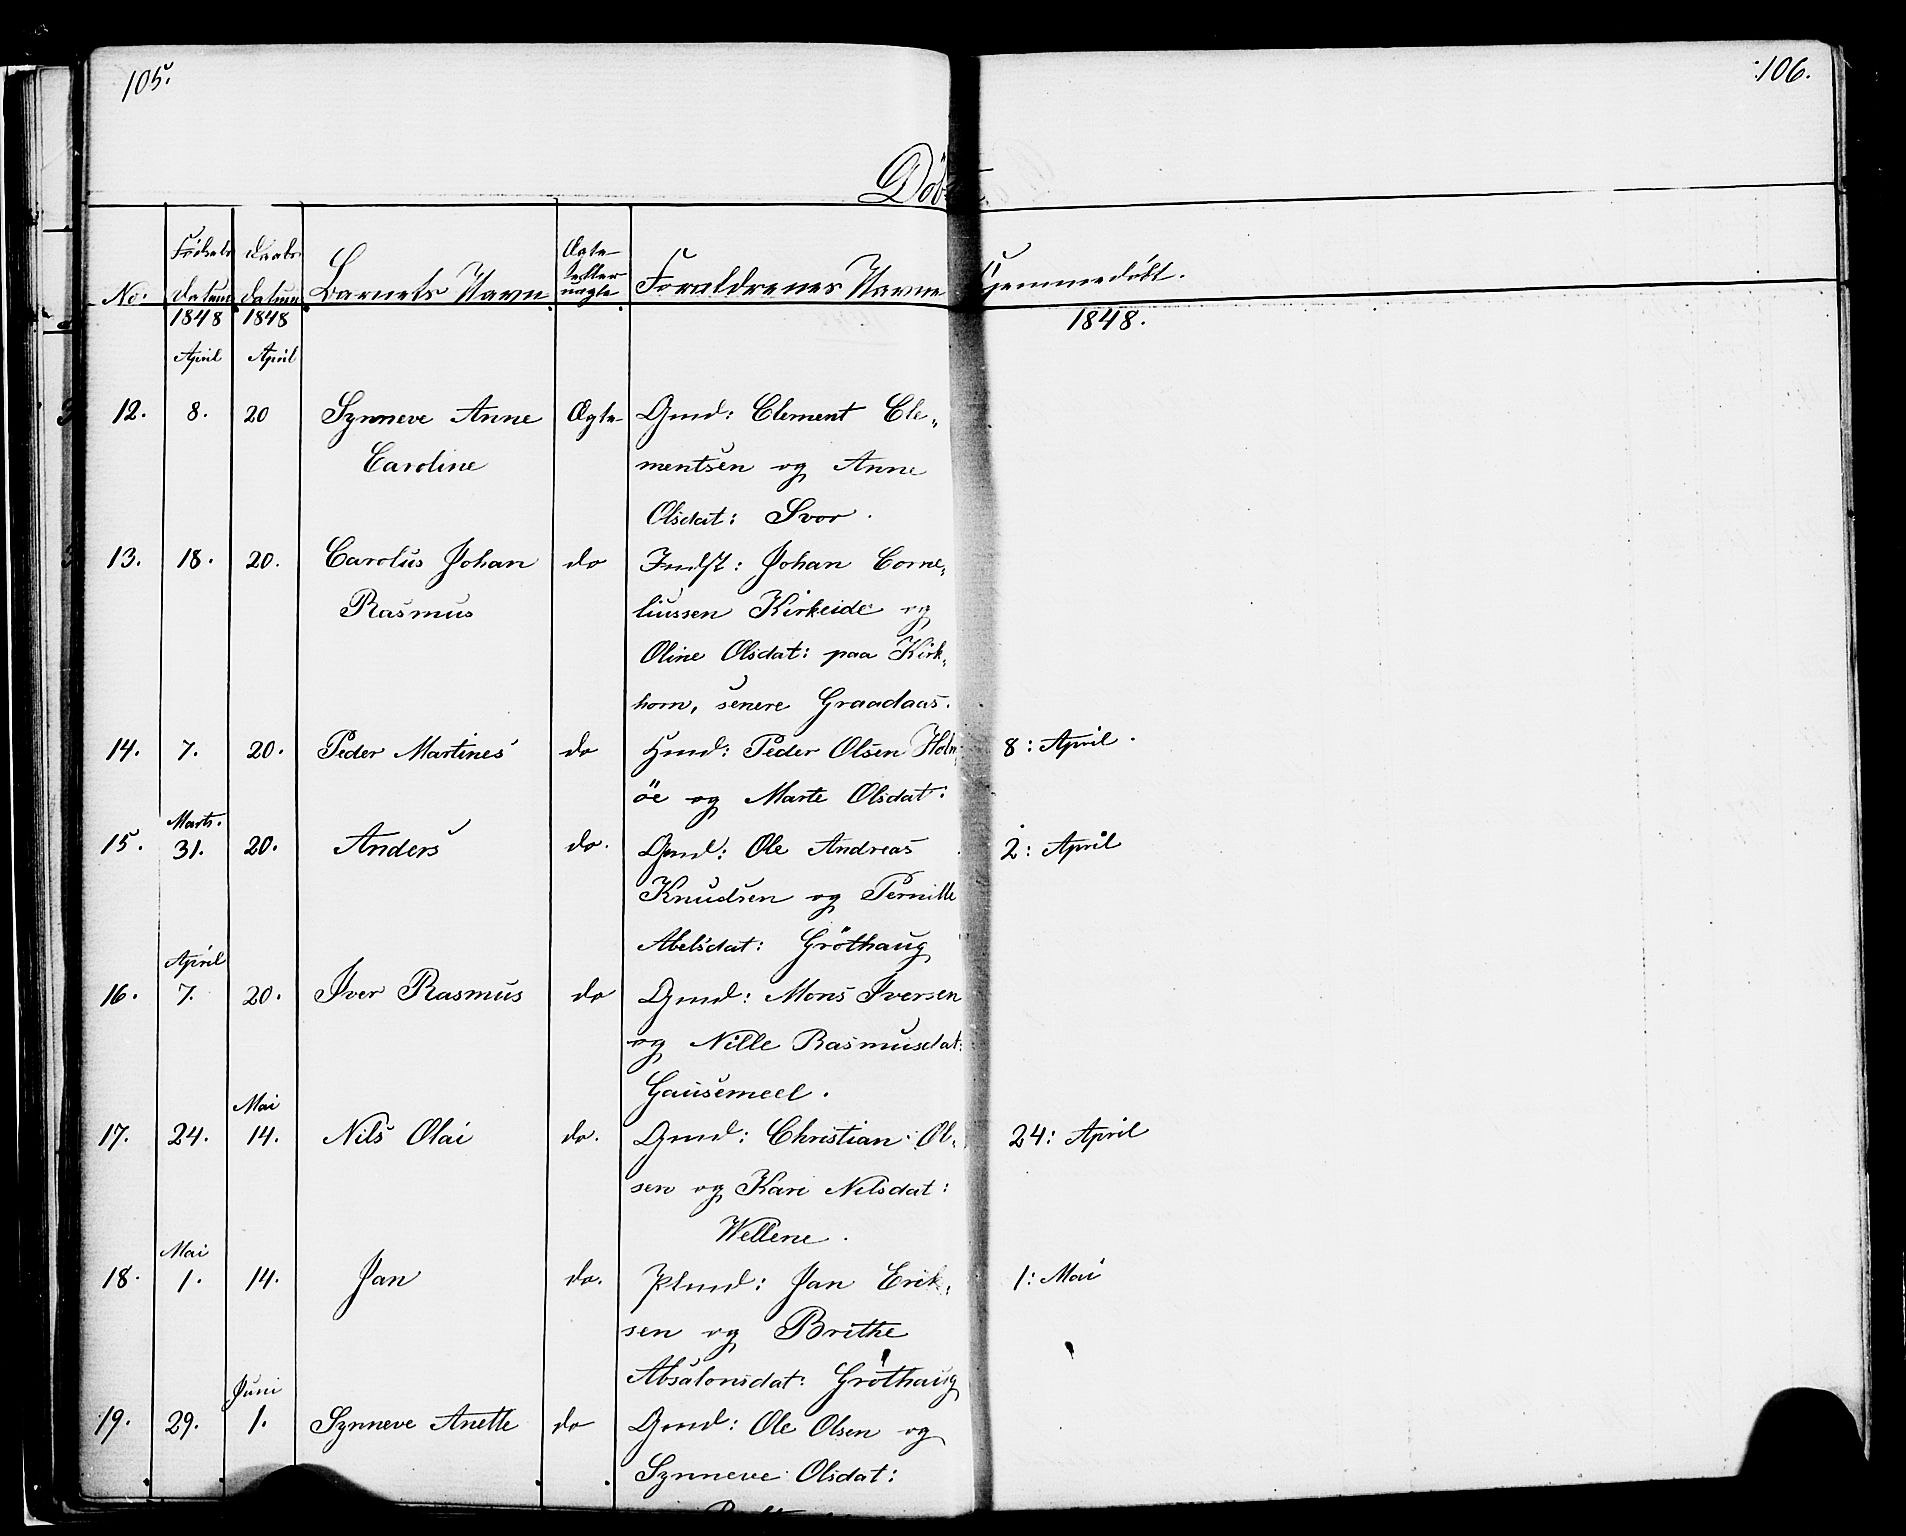 105.
106.
Döbt
No: Födsels Datum Daabs Datum Barnets Navn Ægte eller uægte Forældrenes Navne Hjemmedöbt.
1848 1848 1848.
April April
12. 8. 20 Synneve Anne Ægte Gmd: Clement Cle„
Caroline mentsen og Anne
Olsdat: Svor.
13. 18. 20. Carolus Johan do Indst: Johan Corne„
Rasmus liussen Kirkeide og
Oline Olsdat: paa Kirk„
horn, senere Graadaas.
14. 7. 20. Peder Martines do Hmd: Peder Olsen Holm„ 8: April.
öe og Marte Olsdat:
Marts.
15. 31. 20. Anders do. Gmd: Ole Andreas 2: April
Knudsen og Pernille
Abelsdat: Gröthaug
April
16. 7. 20. Iver Rasmus do Gmd: Mons Iversen
og Nille Rasmusdat:
Gausemeel.
Mai
17. 24. 14. Nils Olai do. Gmd: Christian Ol„ 24: April
sen og Kari Nilsdat:
Wellene.
Mai
18. 1. 14. Jan do. Plmd: Jan Erik„ 1: Mai
sen og Brithe
Absalonsdat: Gröthaug
Juni
19. 29. 1. Synneve Anette do Gmd: Ole Olsen og
Synneve Olsdat: